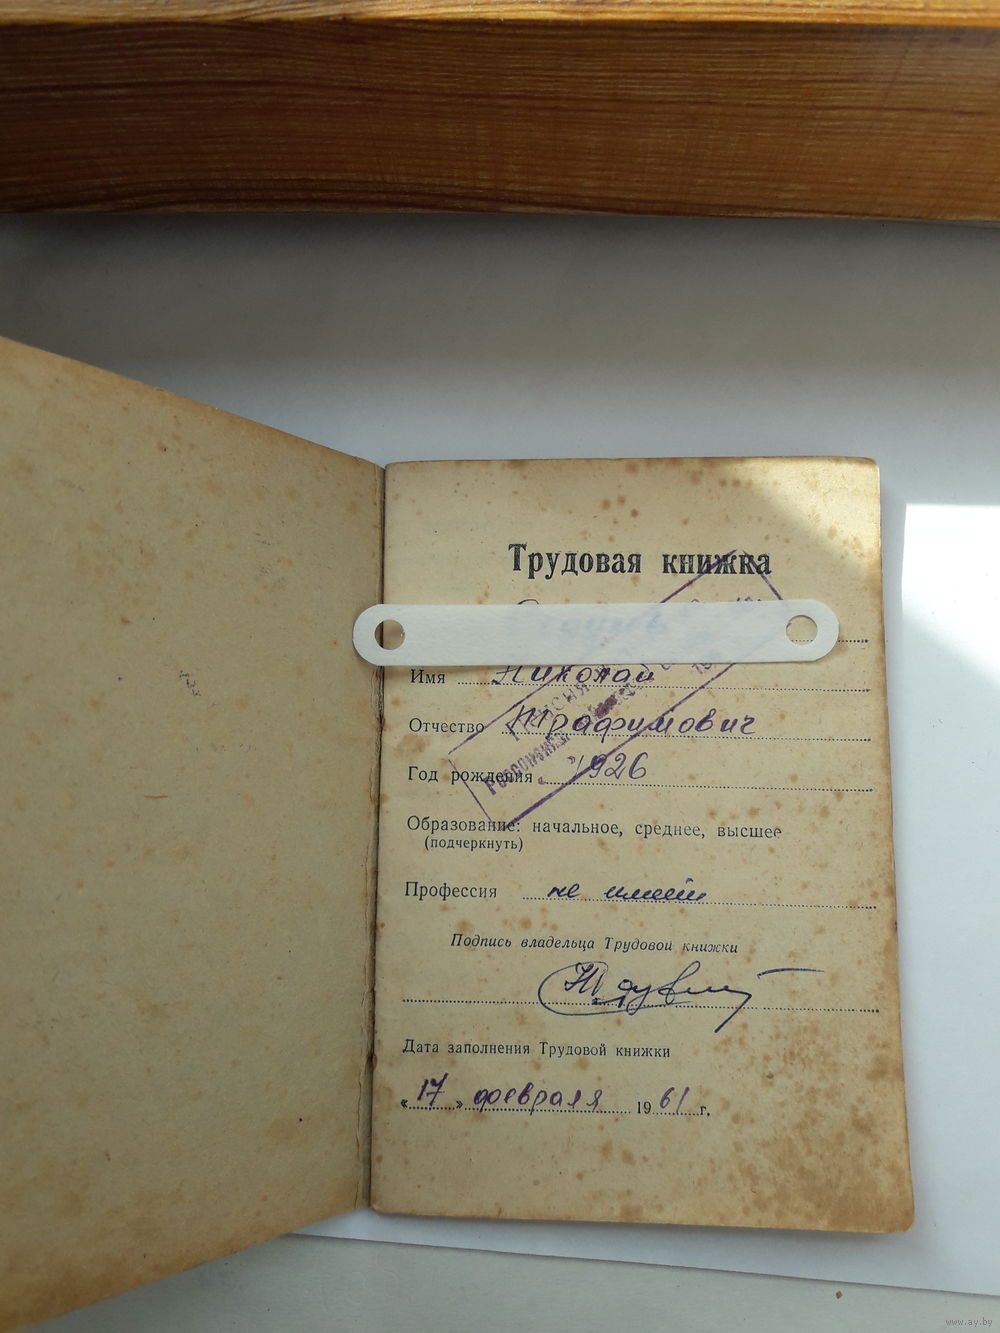 Трудовая книжка
Имя Николай
Отчество Трафимович
Год рождения 1926
Образование: начальное, среднее, высшее
(подчеркнуть)
Профессия не имеет
Подпись владельца Трудовой книжки
Дата заполнения Трудовой книжки
«17» февраля 1961 г.
www.ay.by